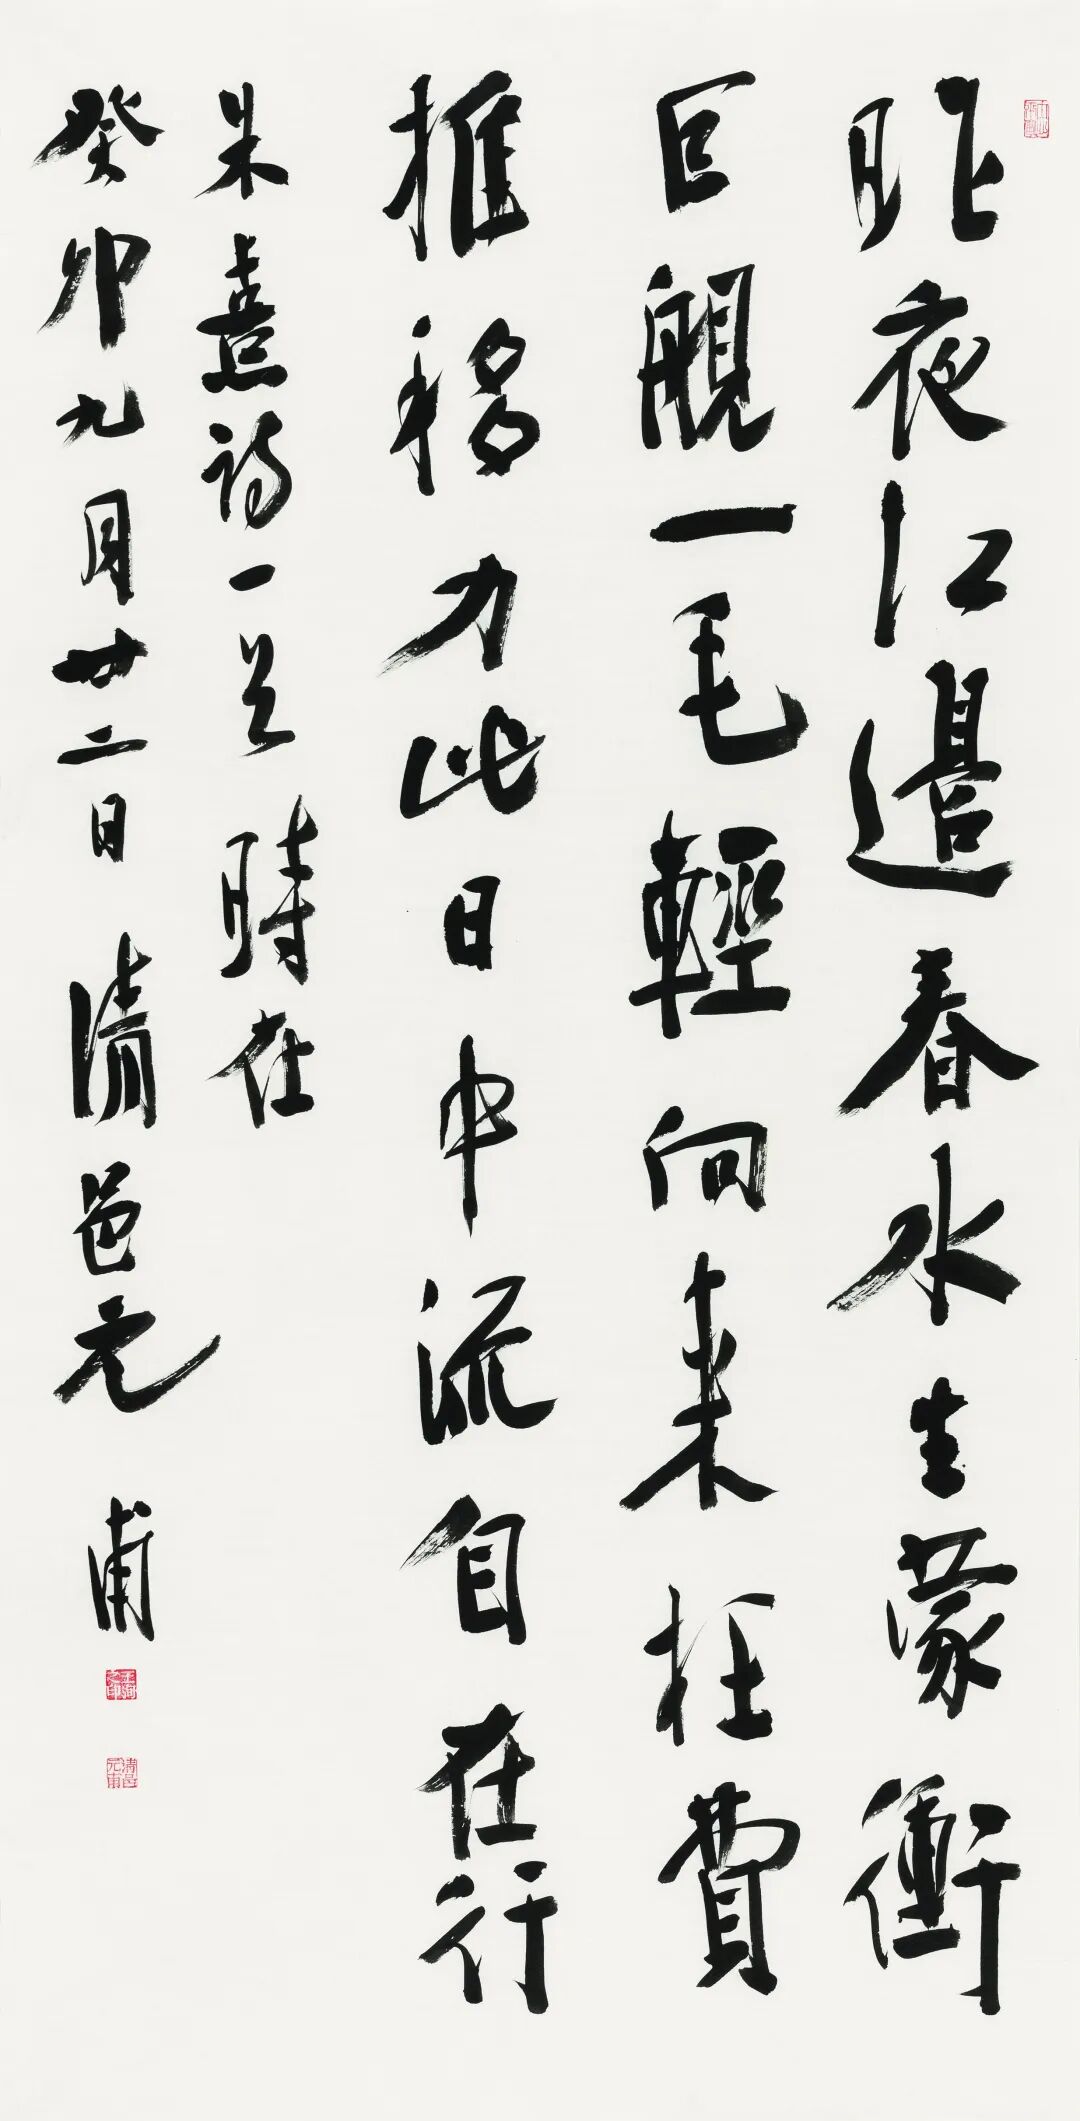 昨夜江邊春水生蒙衝
巨舰一毛輕向來枉費
推移力此日中流自在行
朱熹詩一首 時在
癸卯九月廿二日 清邑元甫
清邑元甫